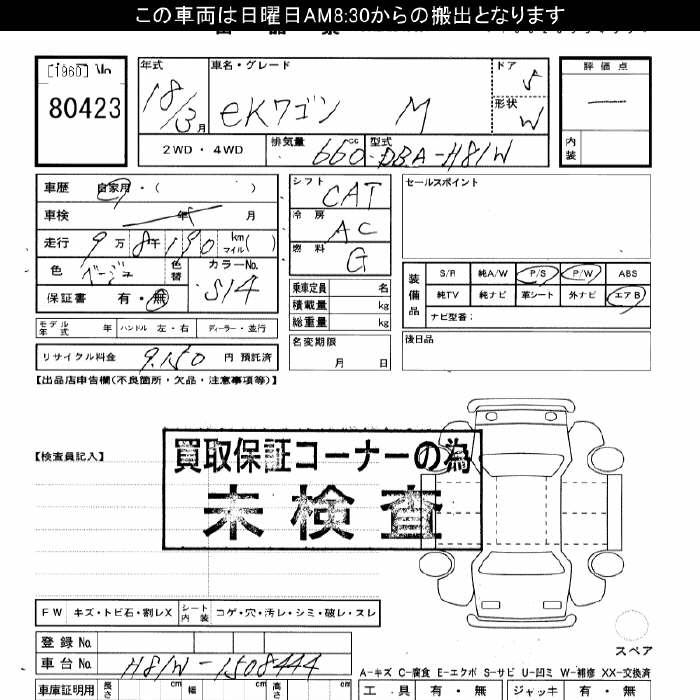 この車両は日曜日AM8:30からの搬出となります
[1960] No
80423
年式 18/3月
車名・グレード eKワゴン M
ドア 5
形状 W
2WD・4WD
排気量 660cc
型式 DBA-H81W
評価点 —
内装
車歴 自家用・( )
車検 年 月
走行 9万8千190 km マイル( )
色 ベージュ 色替 カラーNo. S14
保証書 有・無
モデル年式 年 ハンドル 左・右 ディーラー・並行
リサイクル料金 9,150 円 預託済
シフト CAT
冷房 AC
燃料 G
乗車定員 名
積載量 kg
総重量 kg
名変期限
月 日
セールスポイント
装備品
S/R 純A/W P/S P/W ABS
純TV 純ナビ 革シート 外ナビ エアB
ナビ型番:
後日品
【出品店申告欄(不良箇所・欠品・注意事項等)】
【検査員記入】
買取保証コーナーの為
未検査
FW キズ・トビ石・割レX シート内装 コゲ・穴・汚レ・シミ・破レ・スレ
登録No
車台No H81W-1508444
車庫証明用 長さ cm 幅 cm 高さ cm
スペア
A-キズ C-腐食 E-エクボ S-サビ U-凹ミ W-補修 XX-交換済
工具 有・無 ジャッキ 有・無